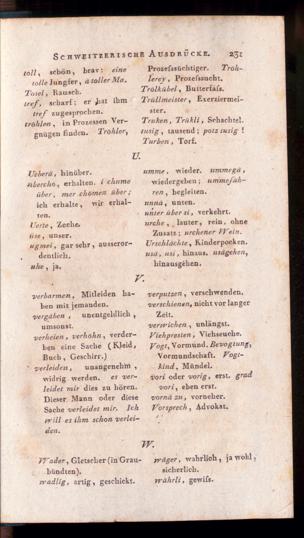 SCHWEITZERISCHE AUSDRÜCKE. 231
toll, schön, brav: eine
tolle Jungfer, a toller Ma.
Tosel, Rausch.
tref, scharf; er hat ihm
tref zugesprochen.
tröhlen, in Prozessen Ver-
gnügen finden. Trohler,
Prozessüchtiger. Troh-
lerey, Prozessucht.
Trölkübel, Butterfass.
Trüllmeister, Exerziermei-
ster.
Truken, Trükli, Schachtel.
tusig, tausend; potz tusig!
Turben, Torf.
U.
Ueberä, hinüber.
übercho, erhalten. i chume
über, mer chömen über;
ich erhalte, wir erhal-
ten.
Uerte, Zeche.
üse, unser.
ugmei, gar sehr, ausseror-
dentlich.
uhe, ja.
umme, wieder. ummegä,
wiedergeben; ummefüh-
ren, begleiten.
unnä, unten.
unter über si, verkehrt.
urche, lauter, rein, ohne
Zusatz; urchener Wein.
Urschlächte, Kinderpocken.
usä, usi, hinaus. usägehen,
hinausgehen.
V.
verbarmen, Mitleiden ha-
ben mit jemanden.
vergäben, unentgeldlich,
umsonst.
verheien, verhohn, verder-
ben eine Sache (Kleid,
Buch, Geschirr.)
verleiden, unangenehm,
widrig werden. es ver-
leidet mir dies zu hören.
Dieser Mann oder diese
Sache verleidet mir. Ich
will es ihm schon verlei-
den.
verputzen, verschwenden.
verschienen, nicht vor langer
Zeit.
verwichen, unlängst.
Viehpresten, Viehseuche.
Vogt, Vormund. Bevogtung,
Vormundschaft. Vogt-
kind, Mündel.
vori oder vorig, erst. grad
vori, eben erst.
vornä zu, vorneher.
Vorsprech, Advokat.
W.
Wader, Gletscher (in Grau-
bündten).
wadlig, artig, geschickt.
wäger, wahrlich, ja wohl,
sicherlich.
währli, gewiss.